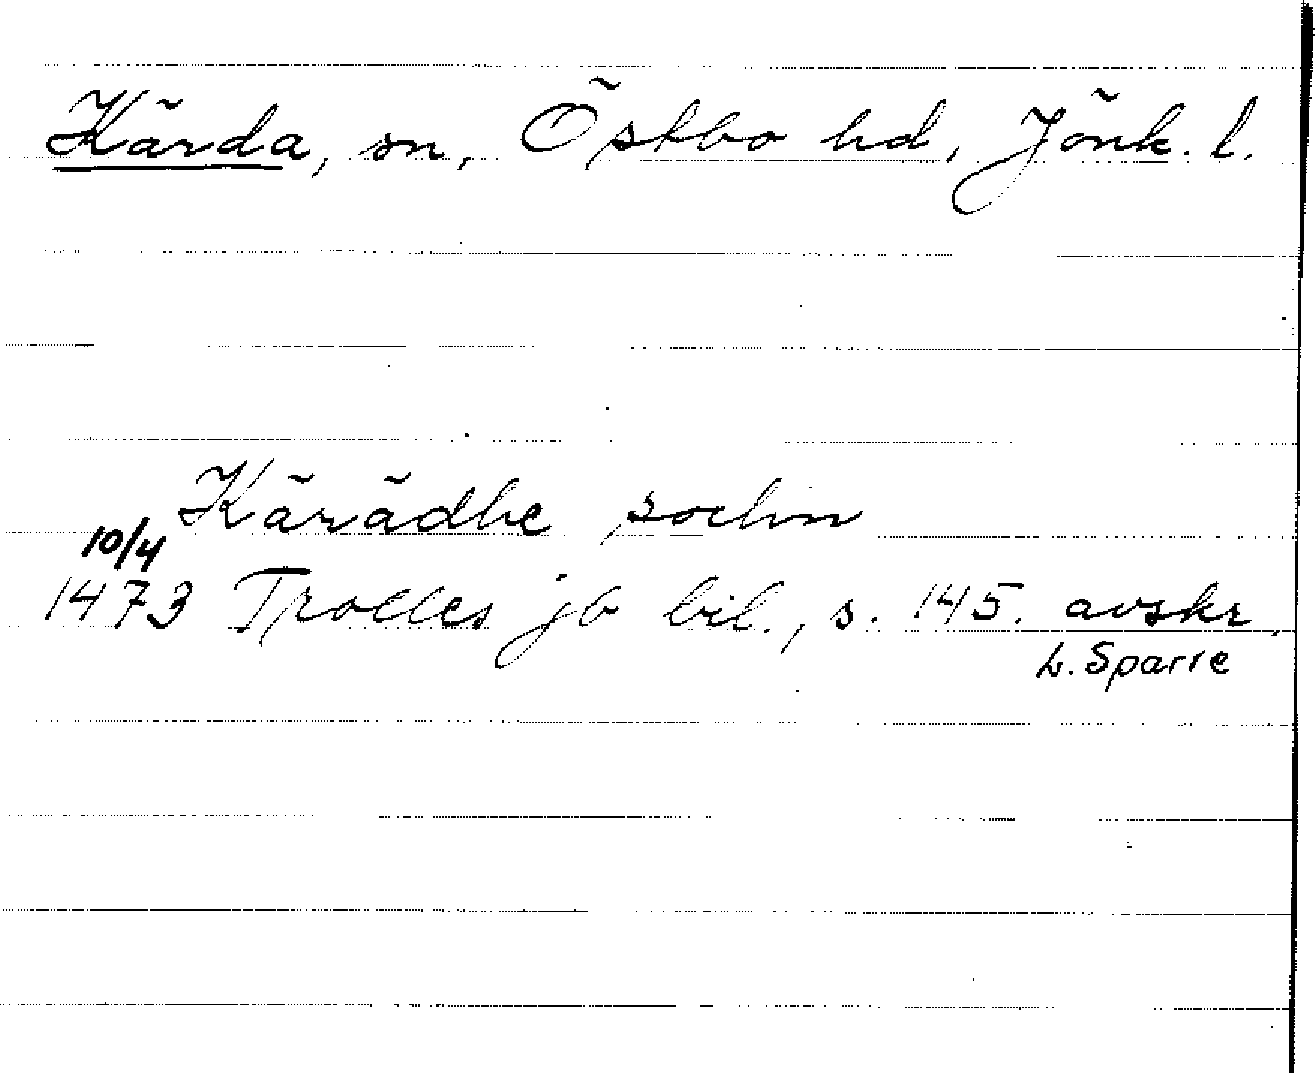 Kärda, sn, Östbo hd, Jönk. l.
Kärädhe sochn
10/4
1473 Trolles jb bil., s. 145. avskr.
L. Sparre